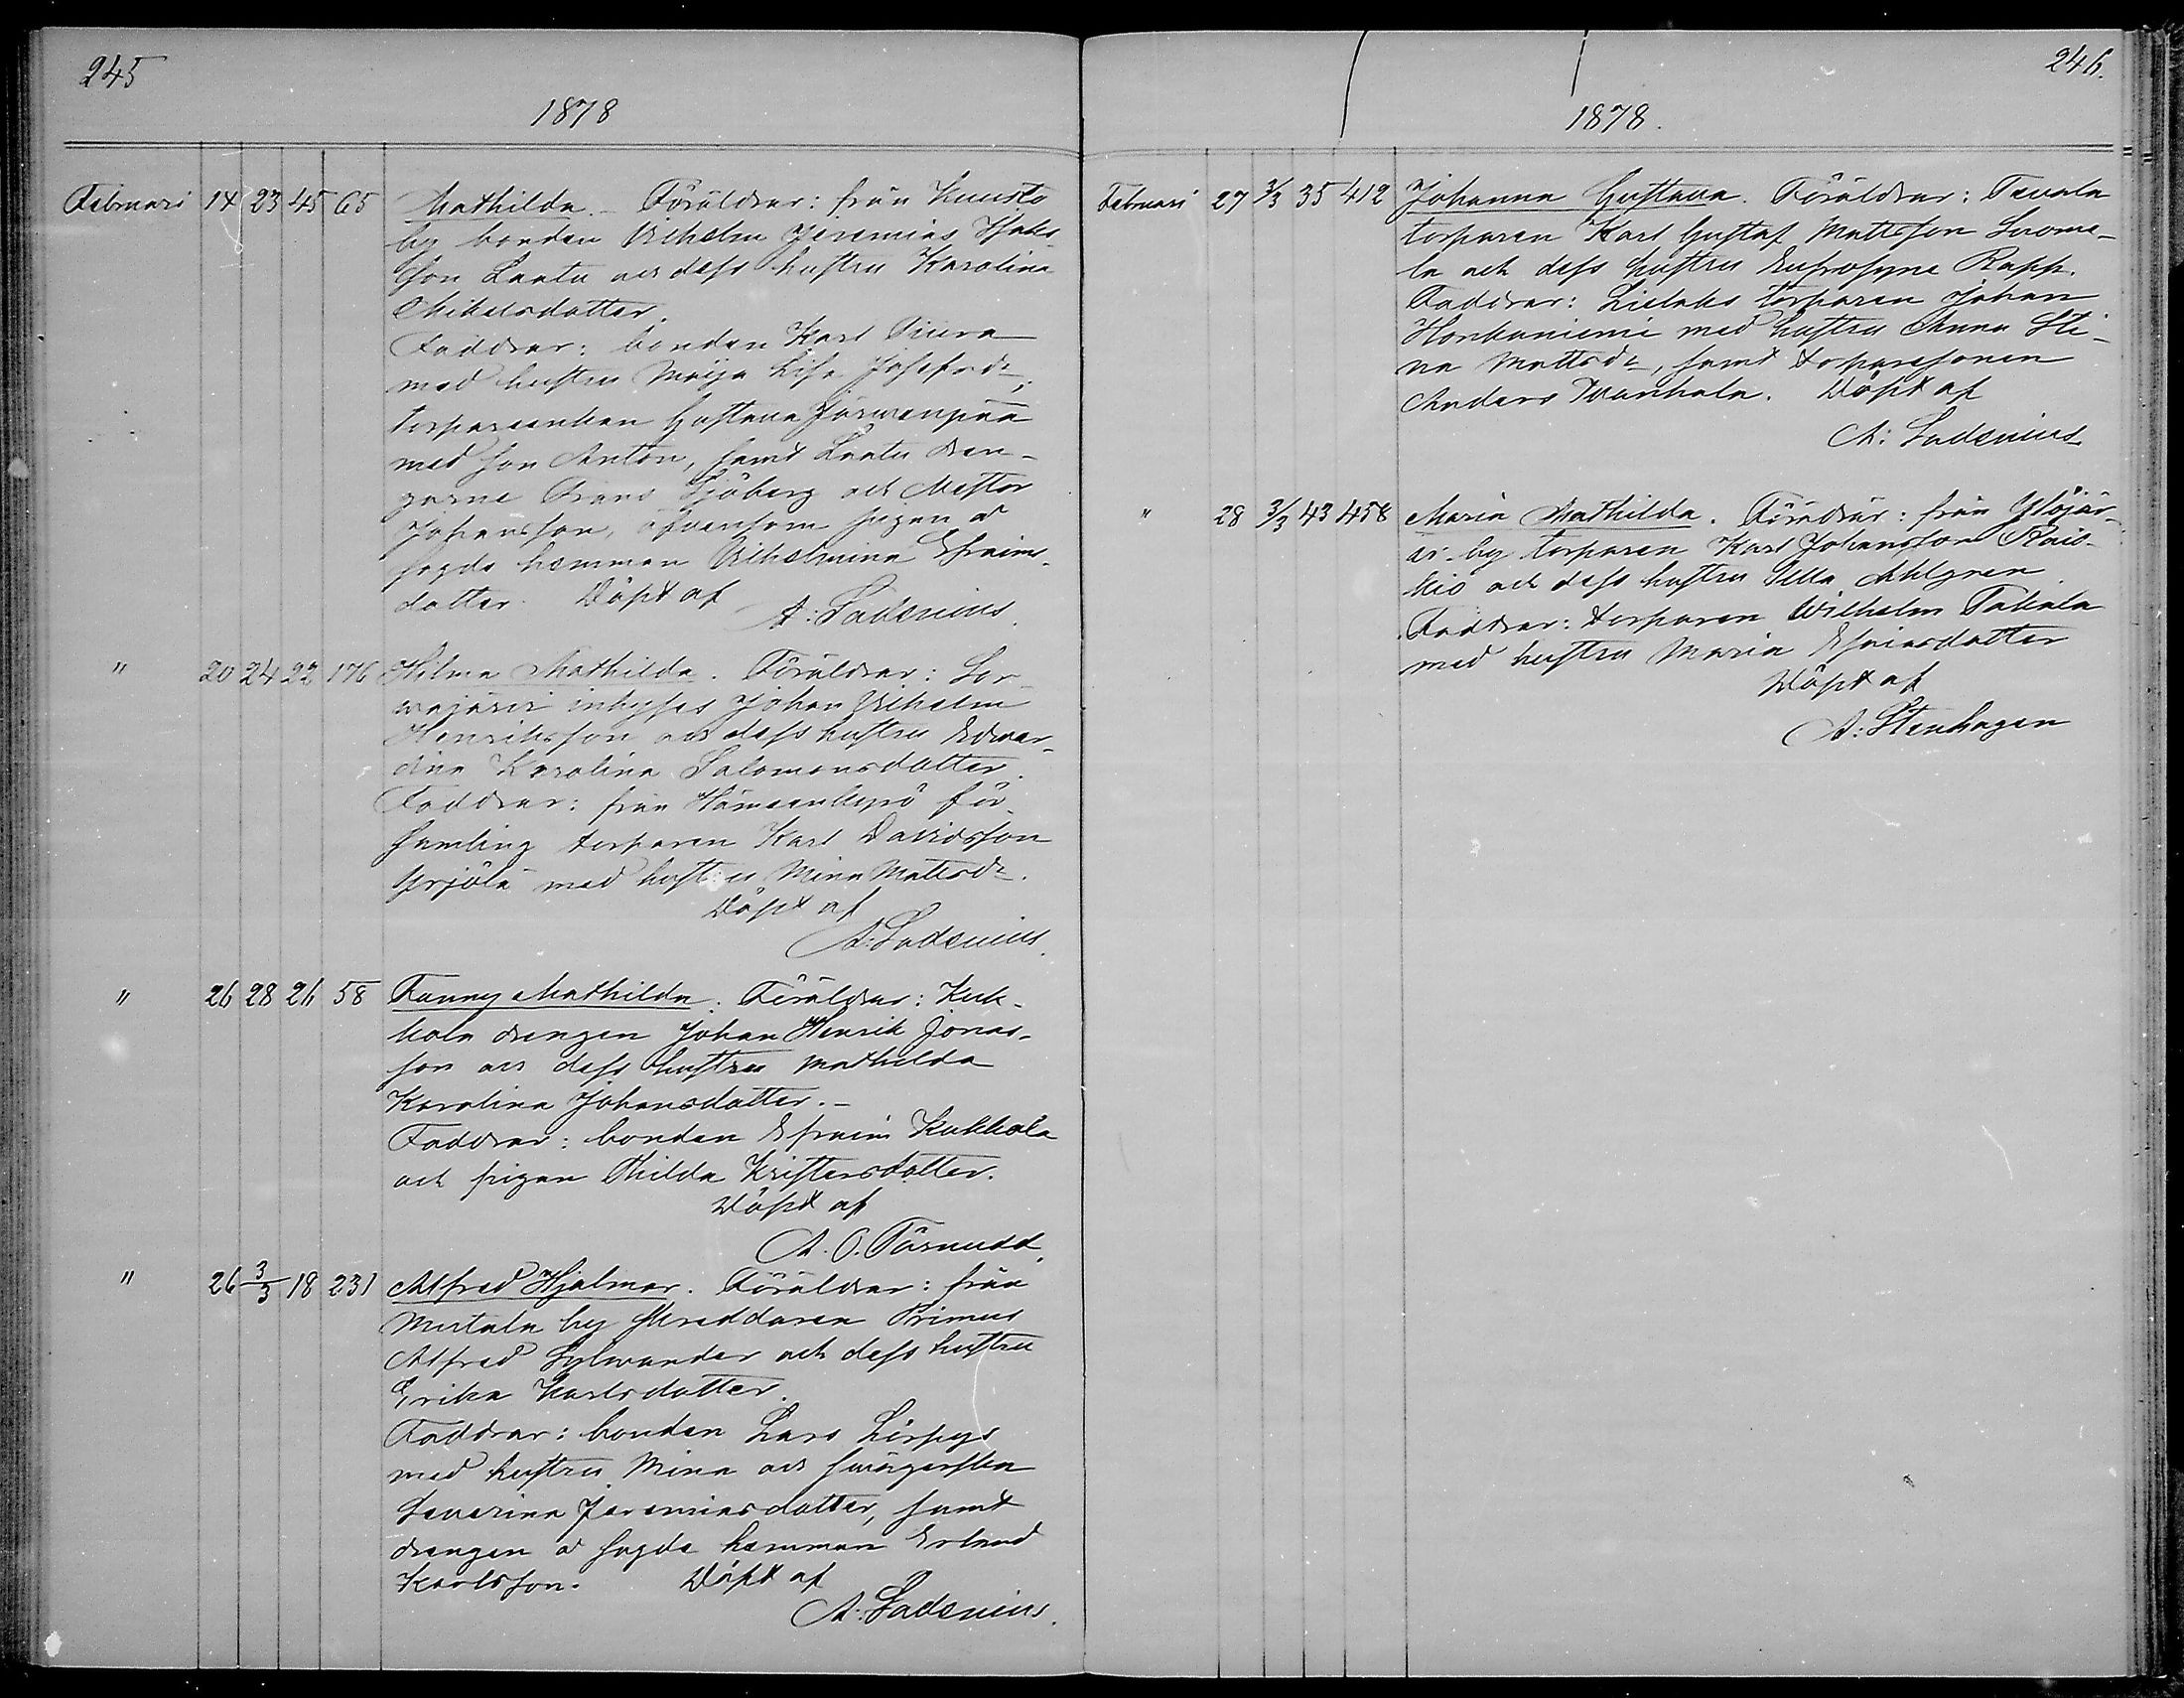 245
1878
Februari 14 23 45 65 Mathilda. Föräldrar: från Kuusto
by bonden Vilhelm Jeremias Isaks-
son Laatu och dess hustru Karolina
Mikelsdotter.
Faddrar: bonden Karl Piura
med hustru Maija Lisa Josefsdr,
torpareenkan Gustava Järwenpää
med son Anton, samt Laatu drän-
garne Frans Sjöberg och Nestor
Johansson, äfvensom pigan å
sagde hemman Vilhelmina Efraims-
dotter. Döpt af
A: Ladenius.
" 20 24 22 176 Hilma Mathilda. Föräldrar: Sor-
wajärvi inhyses Johan Vilhelm
Henriksson och dess hustru Edvar-
dina Karolina Salomonsdotter.
Faddrar: från Hämeenkyrö för-
samling torparen Karl Davidsson
Yrjölä med hustru Mina Mattsdr.
Döpt af
A: Ladenius.
" 26 28 26 58 Fanny Mathilda. Föräldrar: Kuk-
kola drengen Johan Henrik Jonas-
son och dess hustru Mathilda
Karolina Johansdotter.-
Faddrar: bonden Efraim Kukkola
och pigan Thilda Kristersdotter.
Döpt af
A. O. Törnudd.
" 26 3/3 18 231 Alfred Hjalmar. Föräldrar: från
Mertala by skreddaren Primus
Alfred Sylwander och dess hustru
Erika Karlsdotter.
Faddrar: bonden Lars Lörpys
med hustru Mina och swägerskan
Severina Jeremiasdotter, samt
drengen å sagde hemman Erland
Karlsson. Döpt af
A: Ladenius.
246.
1878.
Februari 27 3/3 35 412 Johanna Gustava. Föräldrar: Tevala
torparen Karl Gustaf Mattsson Luoma-
la och dess hustru Eufrosyne Rapp.
Faddrar: Lielaks torparen Johan
Honkaniemi med hustru Anna Sti-
na Mattsdr, samt torparesonen
Anders Wanhala. Döpt af
A: Ladenius
" 28 3/3 43 458 Maria Mathilda. Föräldrar: från Ylöjär-
vi by torparen Karl Johansson Rais-
kio och dess hustru Ulla Ahlgren.
Faddrar: torparen Wilhelm Takala
med hustru Maria Esaiasdotter
Döpt af
A: Stenhagen